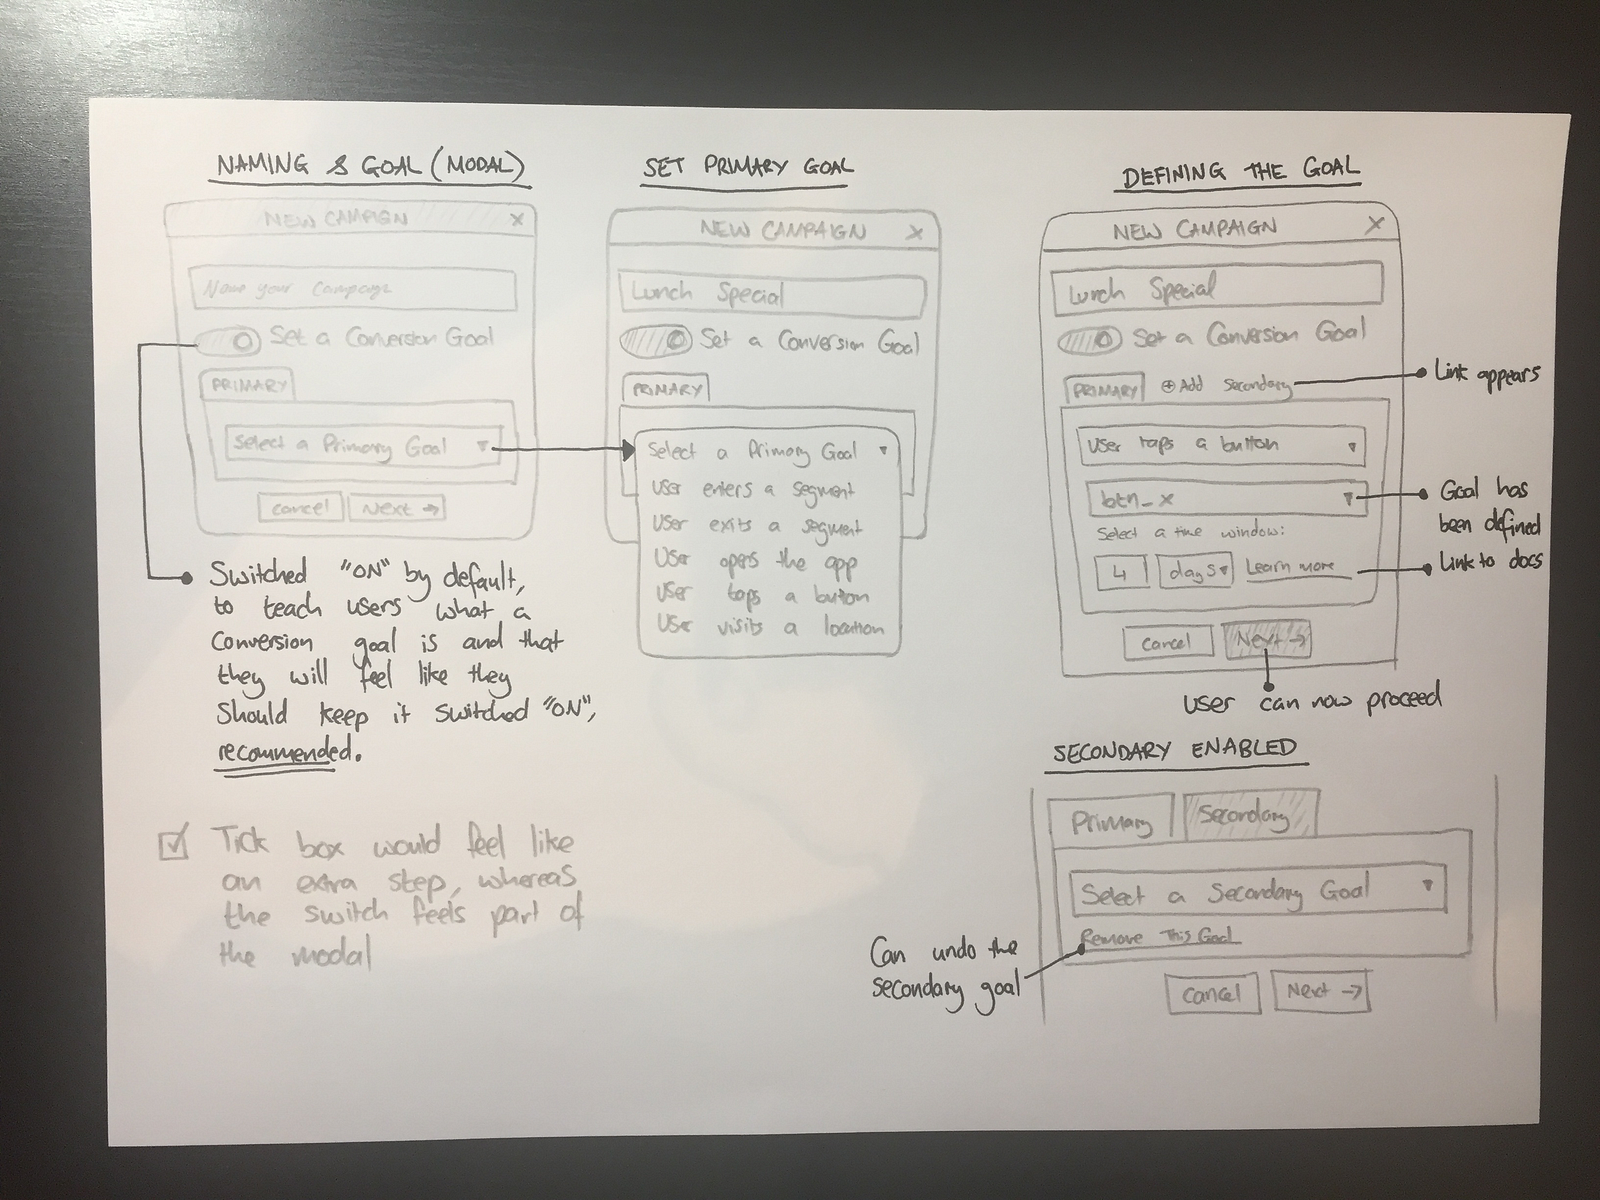 NAMING & GOAL (MODAL)
NEW CAMPAIGN X
Name your Campaign
Set a Conversion Goal
PRIMARY
Select a Primary Goal ▾
Cancel
Next →
Switched "ON" by default,
to teach users what a
conversion goal is and that
they will feel like they
should keep it switched "ON",
recommended.
Tick box would feel like
an extra step, whereas
the switch feels part of
the modal
SET PRIMARY GOAL
NEW CAMPAIGN X
Lunch Special
Set a Conversion Goal
PRIMARY
Select a Primary Goal ▾
User enters a segment
User exits a segment
User opens the app
User taps a button
User visits a location
DEFINING THE GOAL
NEW CAMPAIGN X
Lunch Special
Set a Conversion Goal
PRIMARY
⊕ Add Secondary
Link appears
User taps a button ▾
btn_x ▾
Goal has
been defined
Select a time window:
4
days ▾
Learn more
Link to docs
Cancel
Next →
User can now proceed
SECONDARY ENABLED
Primary
Secondary
Select a Secondary Goal ▾
Remove This Goal
Can undo the
secondary goal
Cancel
Next →